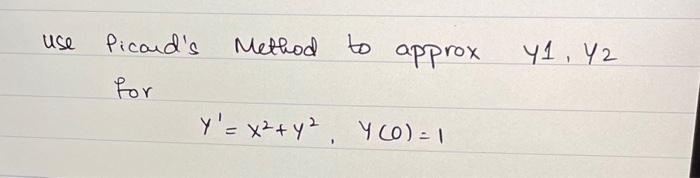 use Picard's Method to approx y1, y2
for
y' = x²+y², y(0)=1